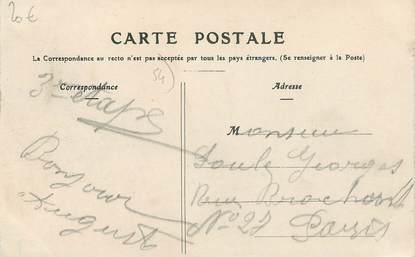 20€
CARTE POSTALE
La Correspondance au recto n'est pas acceptée par tous les pays étrangers. (Se renseigner à la Poste)
54
Correspondance
3e étape
Bonjour
Auguste
Adresse
Monsieur
Georges
Rue Brochant
N° 27 Paris